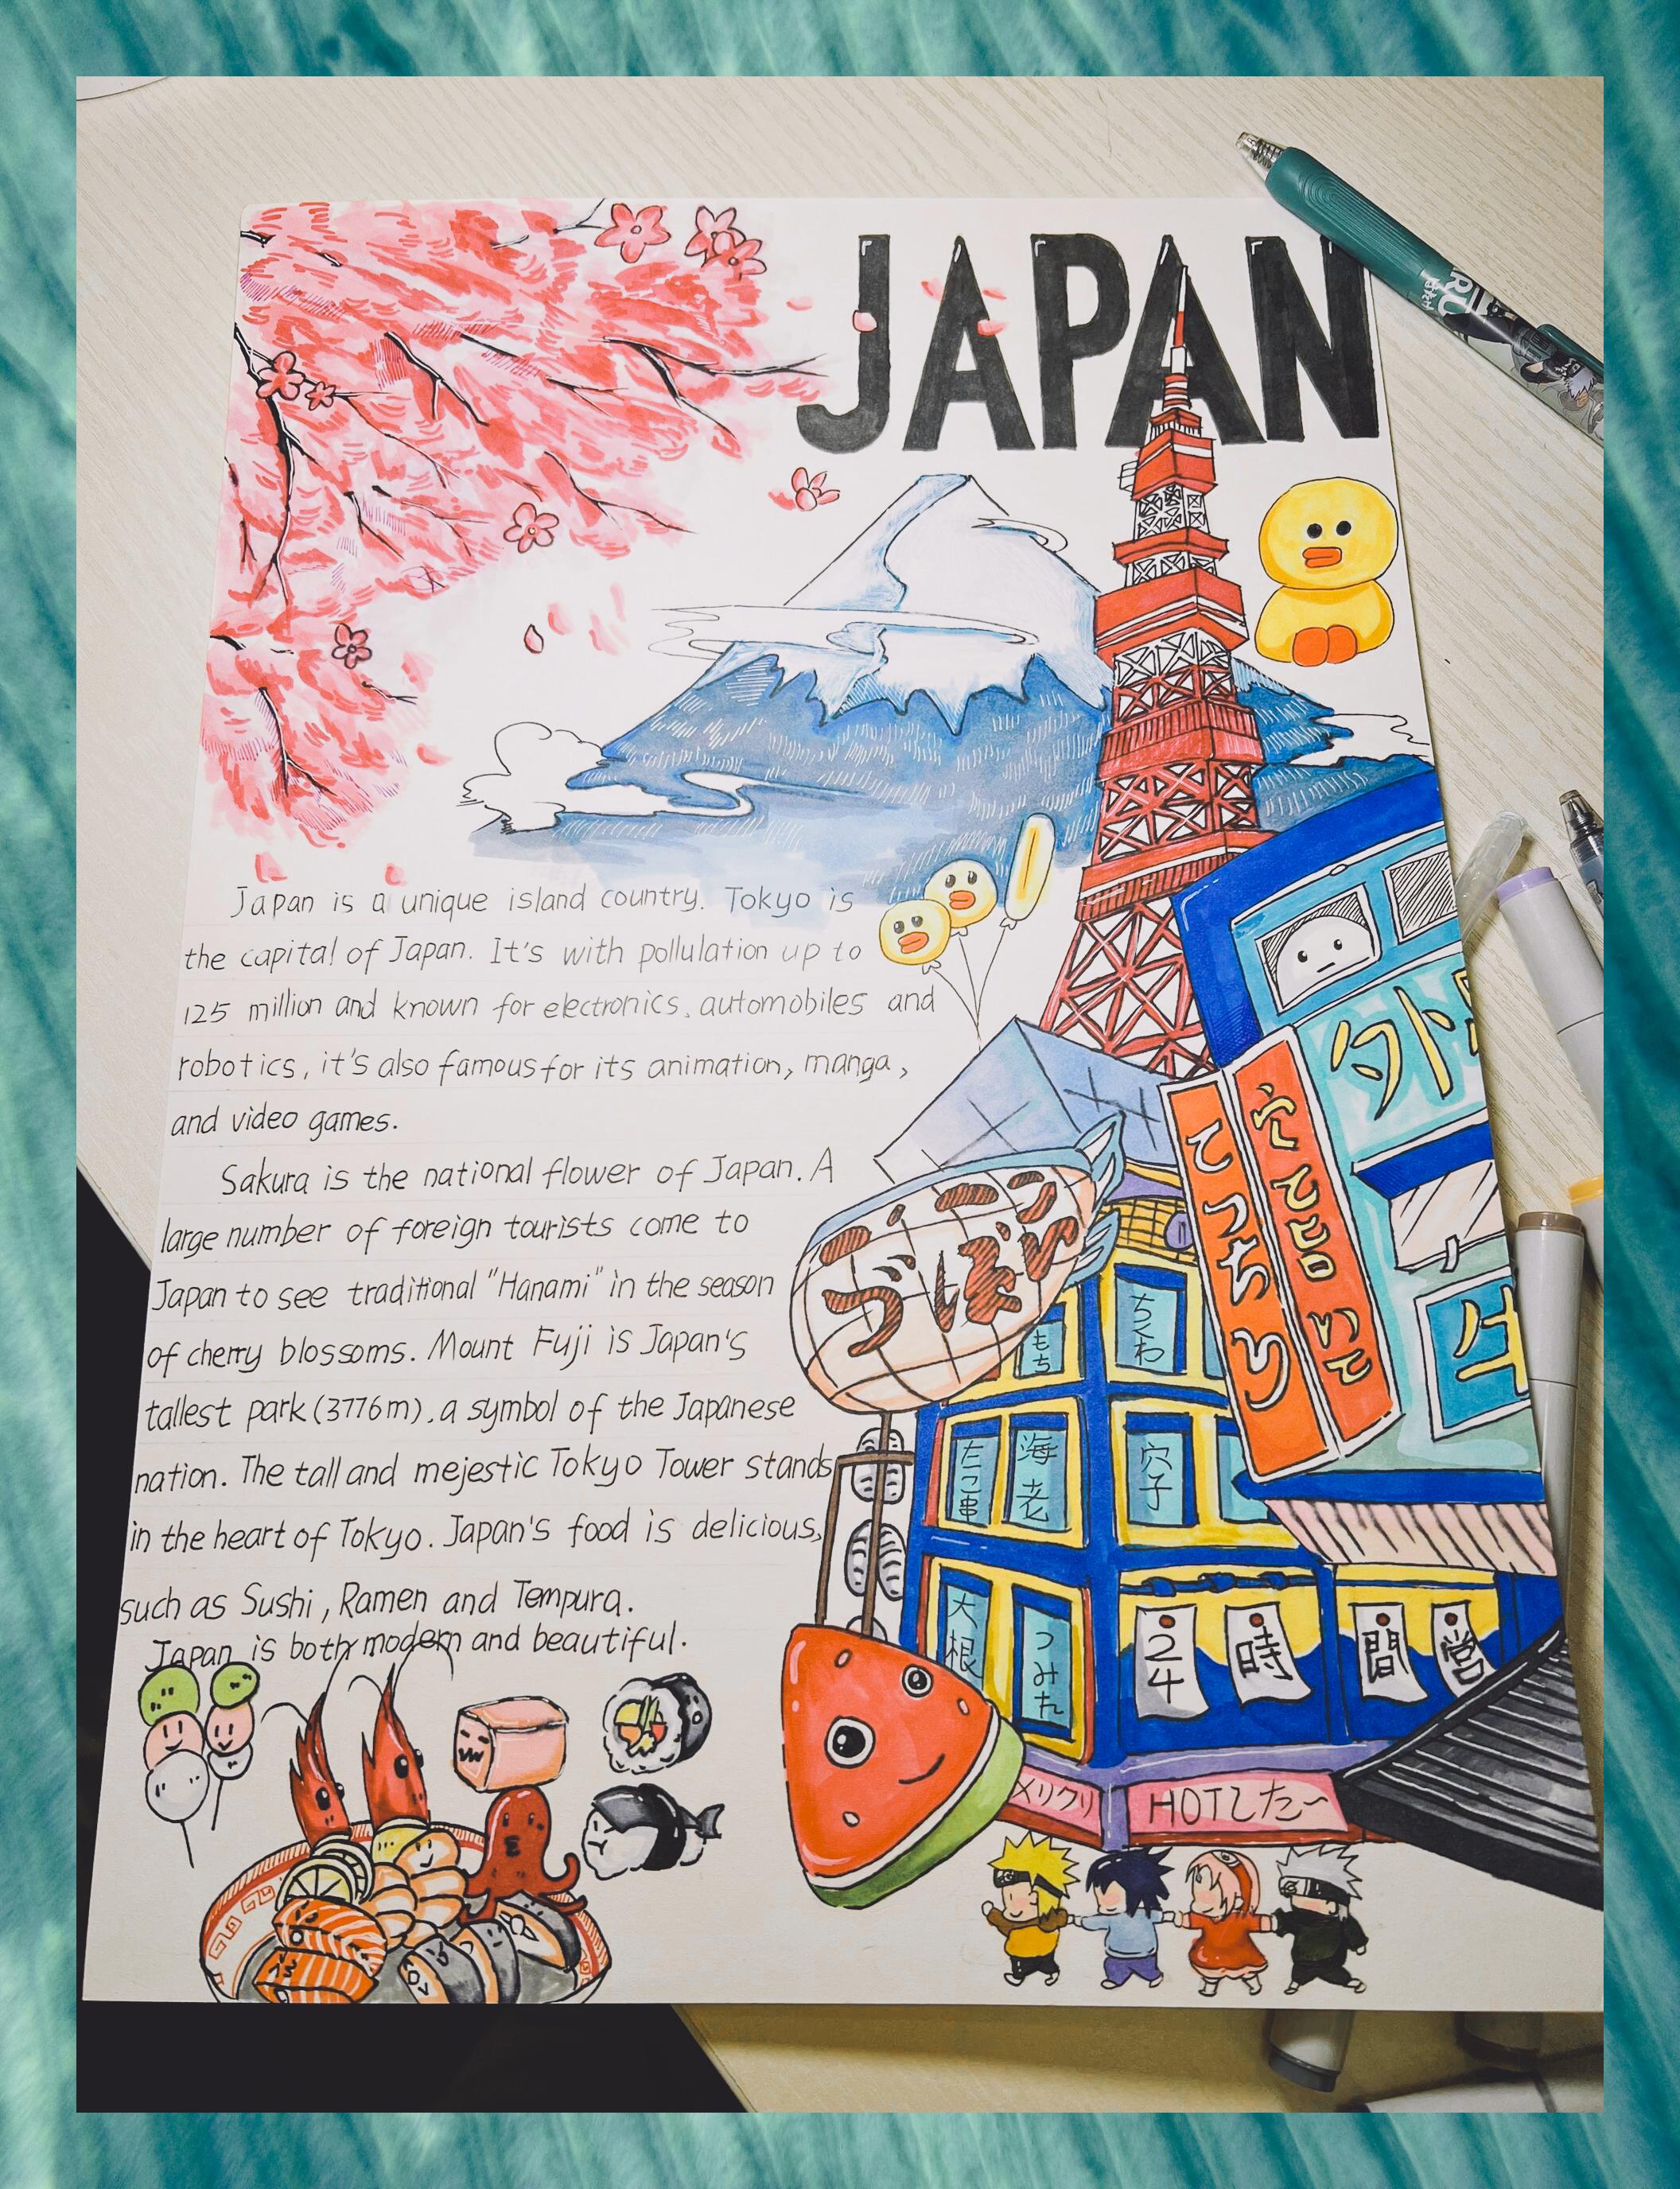 JAPAN
Japan is a unique island country. Tokyo is
the capital of Japan. It's with pollulation up to
125 million and known for electronics, automobiles and
robotics, it's also famous for its animation, manga,
and video games.
Sakura is the national flower of Japan. A
large number of foreign tourists come to
Japan to see traditional "Hanami" in the season
of cherry blossoms. Mount Fuji is Japan's
tallest park (3776m), a symbol of the Japanese
nation. The tall and mejestic Tokyo Tower stands
in the heart of Tokyo. Japan's food is delicious,
such as Sushi, Ramen and Tempura.
Japan is both modern and beautiful.
外
てっちり
づぼらや
もち
ちくわ
たこ串
海老
穴子
大根
つみれ
24
時
間
営
メリクリ
HOTした〜